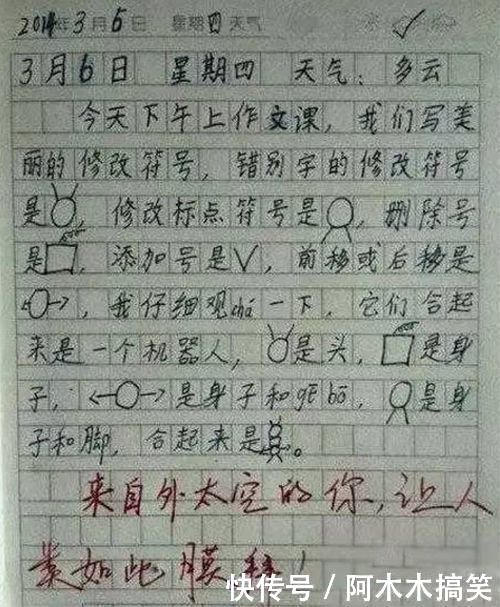 2014年3月6日 星期四天气
3月6日 星期四 天气：多云
今天下午上作文课，我们写美
丽的修改符号，错别字的修改符号
是，修改标点符号是，删除号
是，添加号是∨，前移或后移是
←○→，我仔细观chá一下，它们合起
来是一个机器人，是头，是身
子，←○→是身子和gē bō，是身
子和脚，合起来是。
来自外太空的你，让人
类如此膜拜！
快传号/阿木木搞笑